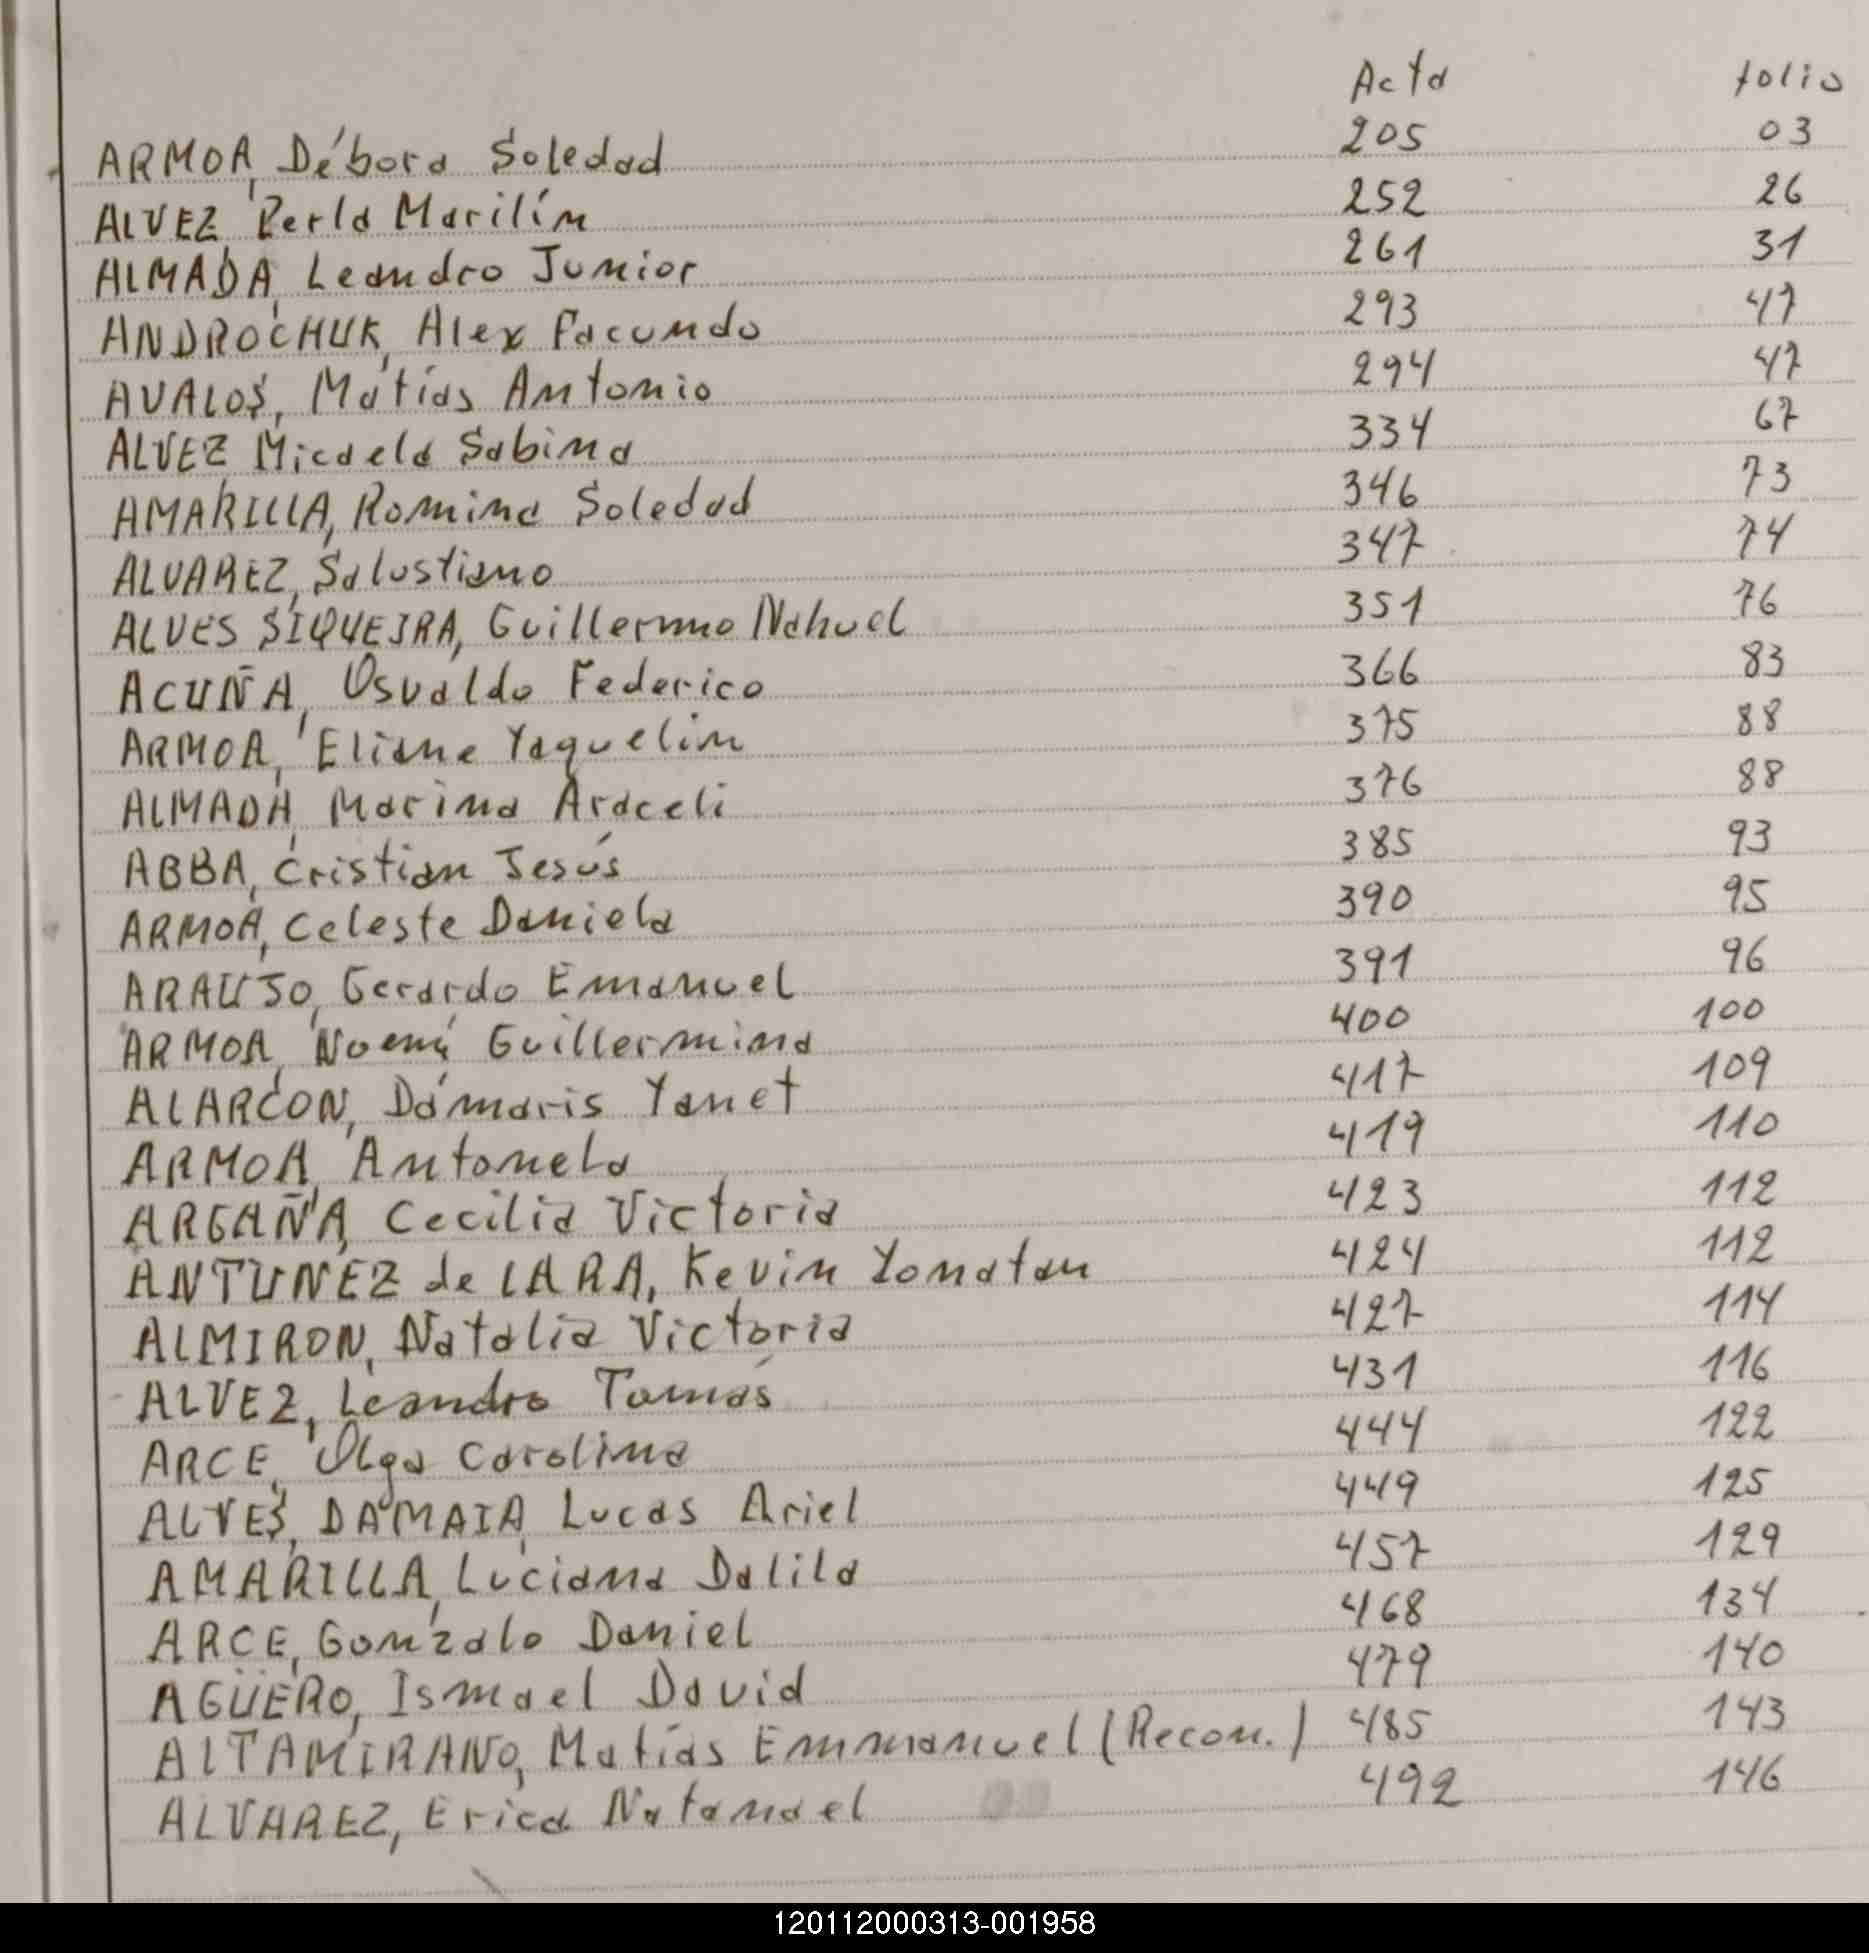 Acta folio
ARMOA, Débora Soledad 205 03
ALVEZ, Perla Marilín 252 26
ALMADA, Leandro Junior 261 31
ANDROCHUK, Alex Facundo 293 47
AVALOS, Matías Antonio 294 47
ALVEZ Micaela Sabina 334 67
AMARILLA, Romina Soledad 346 73
ALVAREZ, Salustiano 347 74
ALVES SIQUEIRA, Guillermo Nahuel 351 76
ACUÑA, Osvaldo Federico 366 83
ARMOA, Eliane Yaquelin 375 88
ALMADA, Marina Araceli 376 88
ABBA, Cristian Jesús 385 93
ARMOA, Celeste Daniela 390 95
ARAUJO, Gerardo Emanuel 391 96
ARMOA, Noemí Guillermina 400 100
ALARCON, Dámaris Yanet 417 109
ARMOA, Antonela 419 110
ARGAÑA, Cecilia Victoria 423 112
ANTUNEZ de LARA, Kevin Yonatan 424 112
ALMIRON, Natalia Victoria 427 114
ALVEZ, Leandro Tomás 431 116
ARCE, Olga Carolina 444 122
ALVES, DAMAIA, Lucas Ariel 449 125
AMARILLA, Luciana Dalila 457 129
ARCE, Gonzalo Daniel 468 134
AGÜERO, Ismael David 479 140
ALTAMIRANO, Matías Emmanuel (Recon.) 485 143
ALVAREZ, Erica Natanael 492 146
120112000313-001958